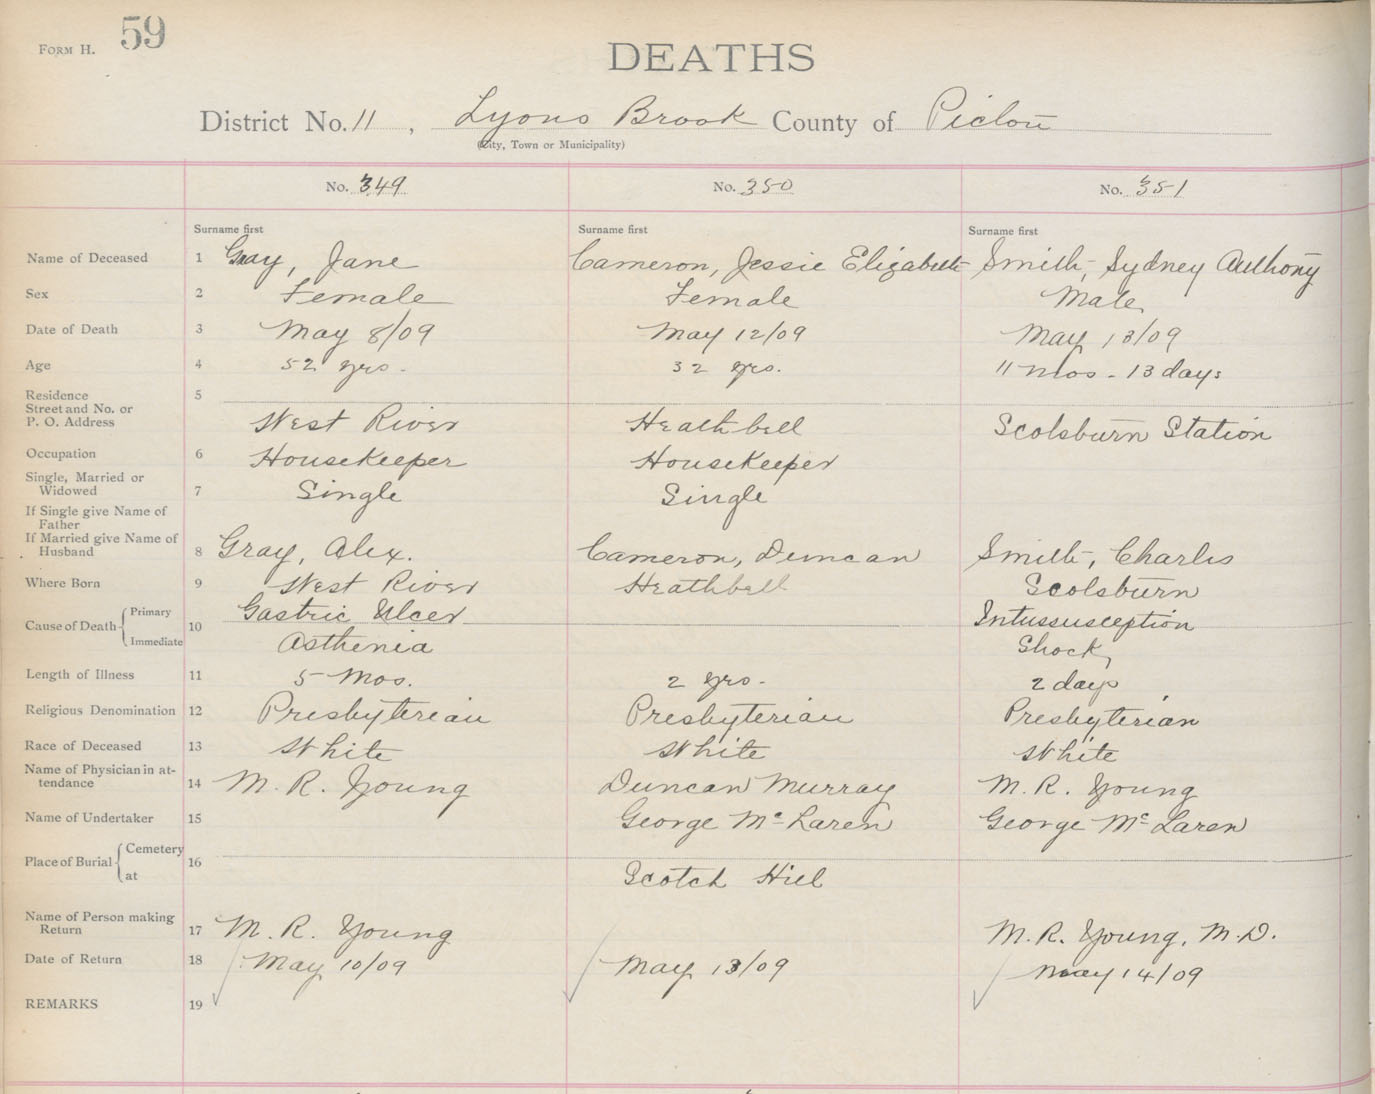 FORM H. 59
DEATHS
District No. 11, Lyons Brook County of Pictou
(City, Town or Municipality)
No. 349 No. 350 No. 351
Surname first Surname first Surname first
Name of Deceased 1 Gray, Jane Cameron, Jessie Elizabeth Smith, Sydney Anthony
Sex 2 Female Female Male
Date of Death 3 May 8/09 May 12/09 May 13/09
Age 4 52 yrs. 32 yrs. 11 mos - 13 days
Residence 5
Street and No. or
P. O. Address West River Heathbell Scotsburn Station
Occupation 6 Housekeeper Housekeeper
Single, Married or
Widowed 7 Single Single
If Single give Name of
Father
If Married give Name of
Husband 8 Gray, Alex. Cameron, Duncan Smith, Charles
Where Born 9 West River Heathbell Scotsburn
Cause of Death Primary 10 Gastric Ulcer Intussusception
Immediate Asthenia Shock
Length of Illness 11 5 Mos. 2 yrs - 2 days
Religious Denomination 12 Presbyterian Presbyterian Presbyterian
Race of Deceased 13 White White White
Name of Physician in at-
tendance 14 M. R. Young Duncan Murray M. R. Young
Name of Undertaker 15 George McLaren George McLaren
Place of Burial Cemetery 16
at Scotch Hill
Name of Person making
Return 17 M. R. Young M. R. Young, M.D.
Date of Return 18 May 10/09 May 13/09 May 14/09
REMARKS 19